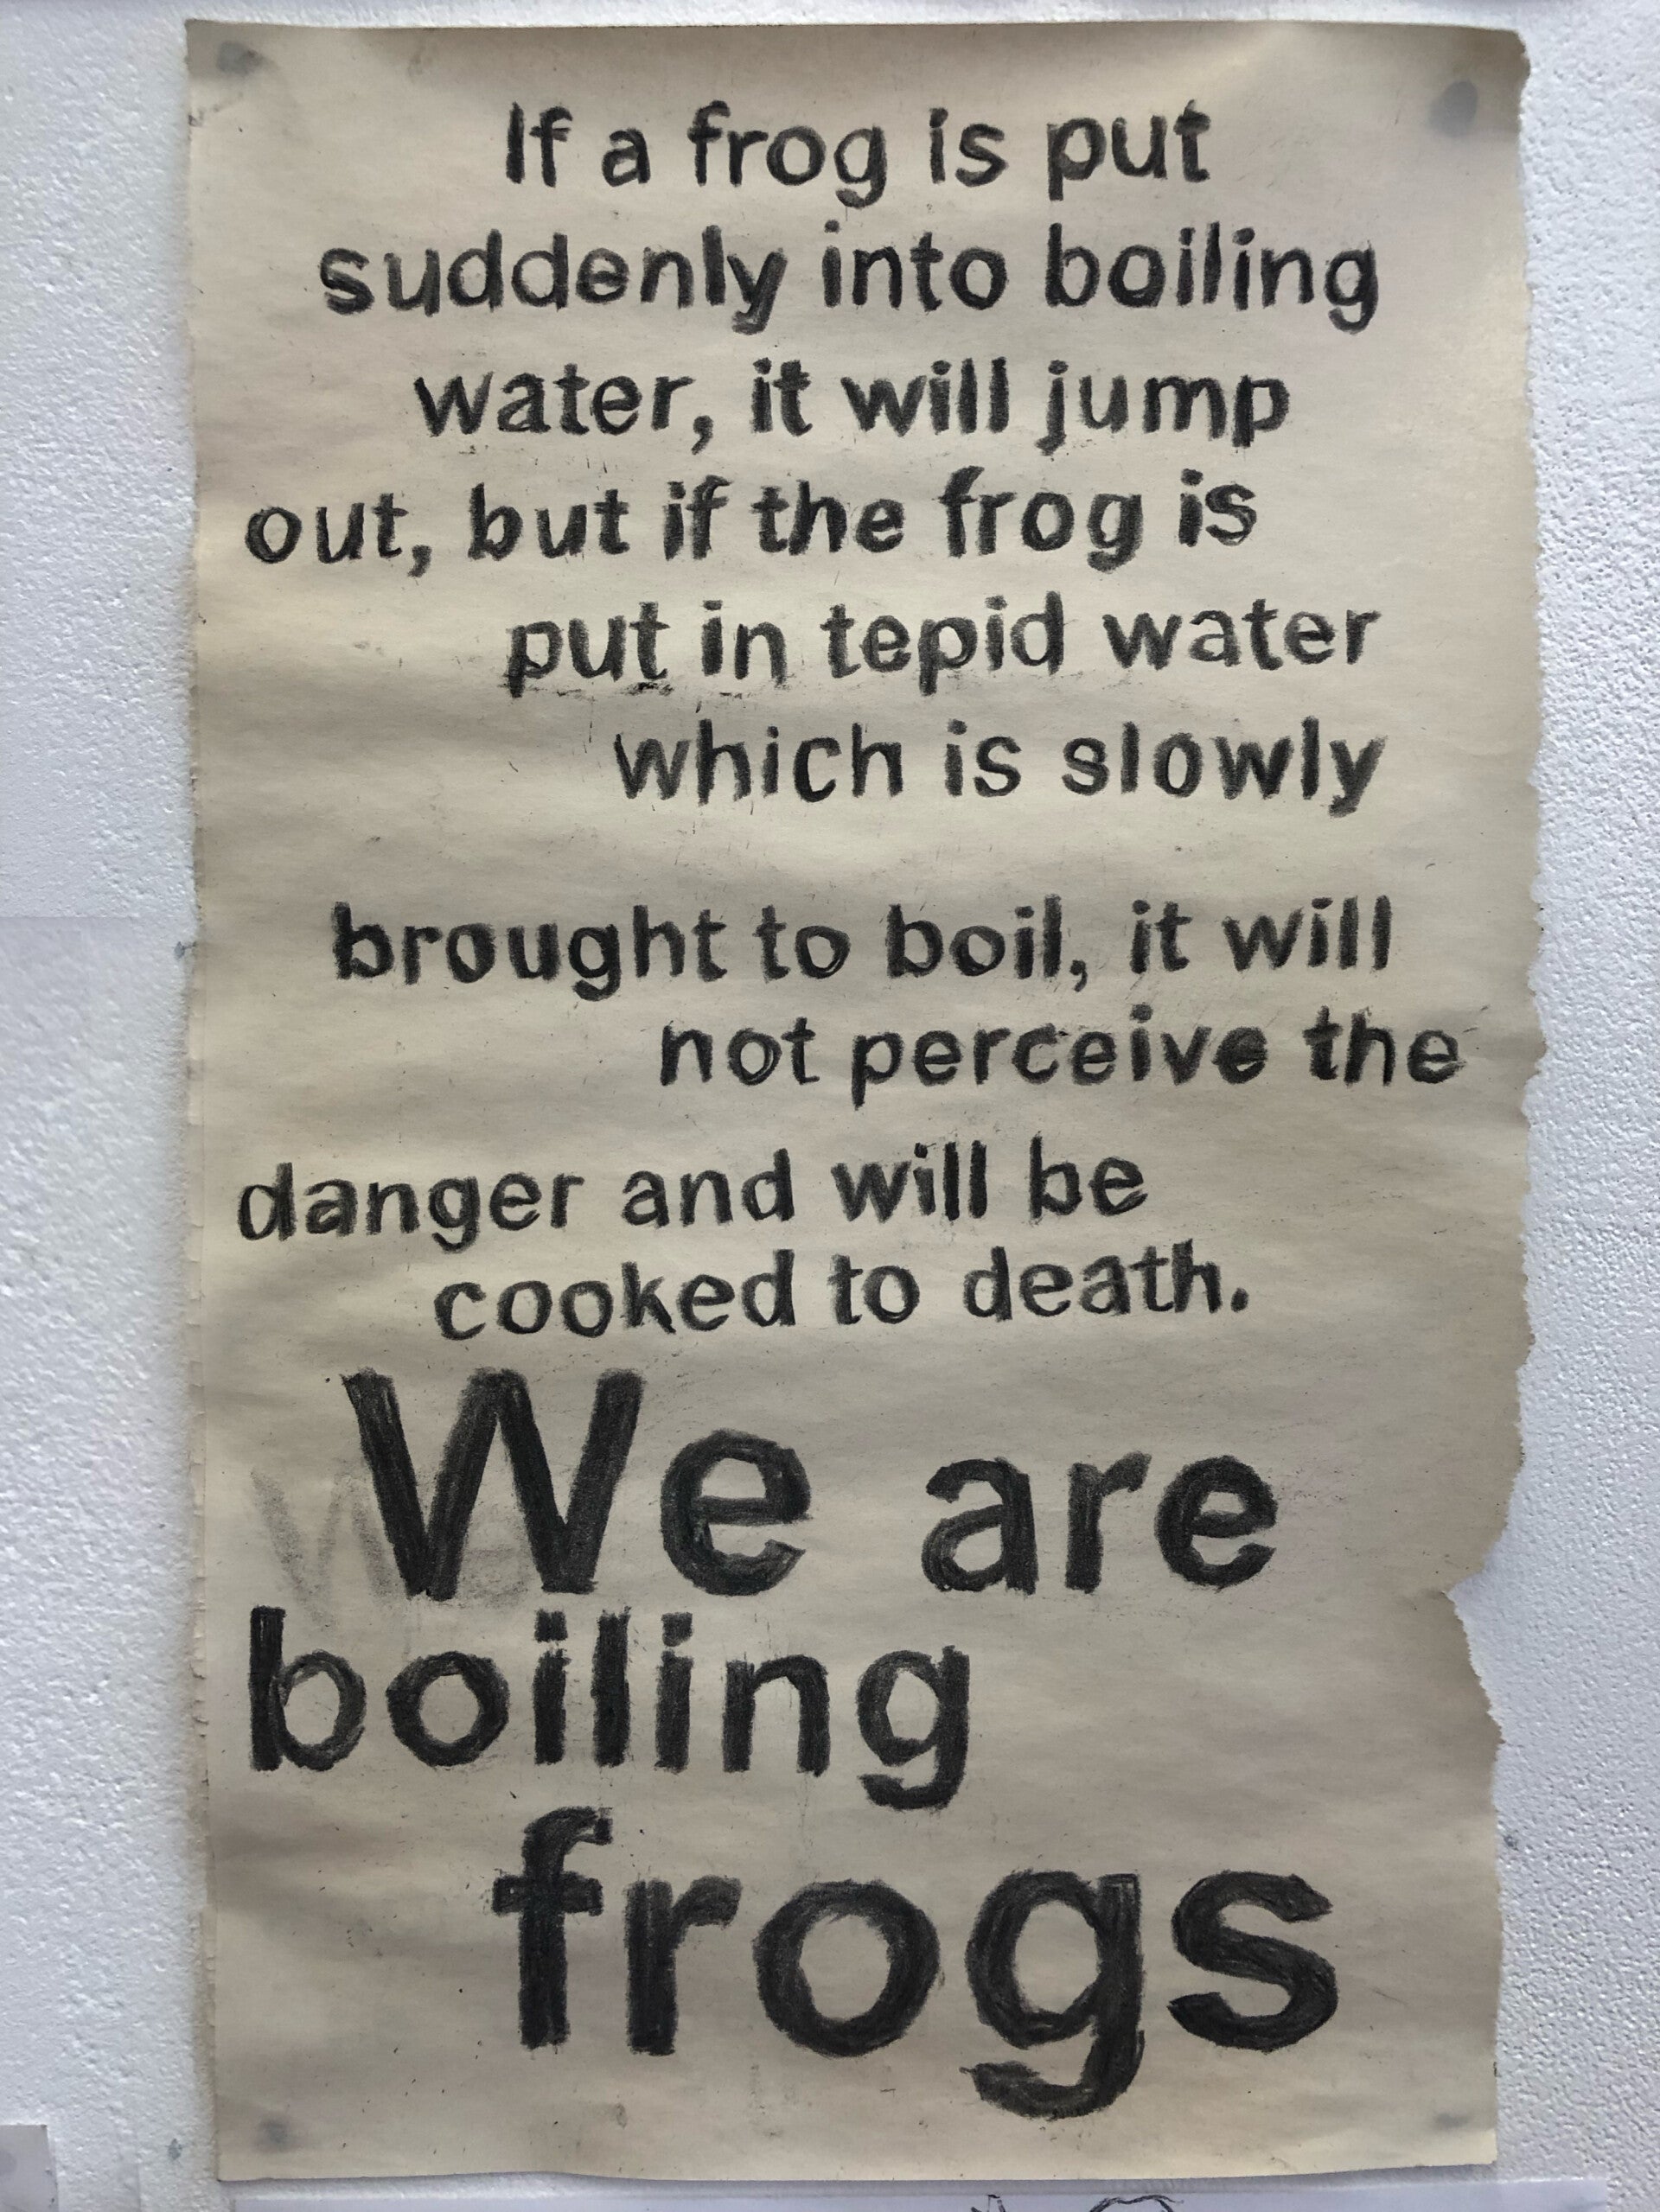 If a frog is put
suddenly into boiling
water, it will jump
out, but if the frog is
put in tepid water
which is slowly
brought to boil, it will
not perceive the
danger and will be
cooked to death.
We are
boiling
frogs